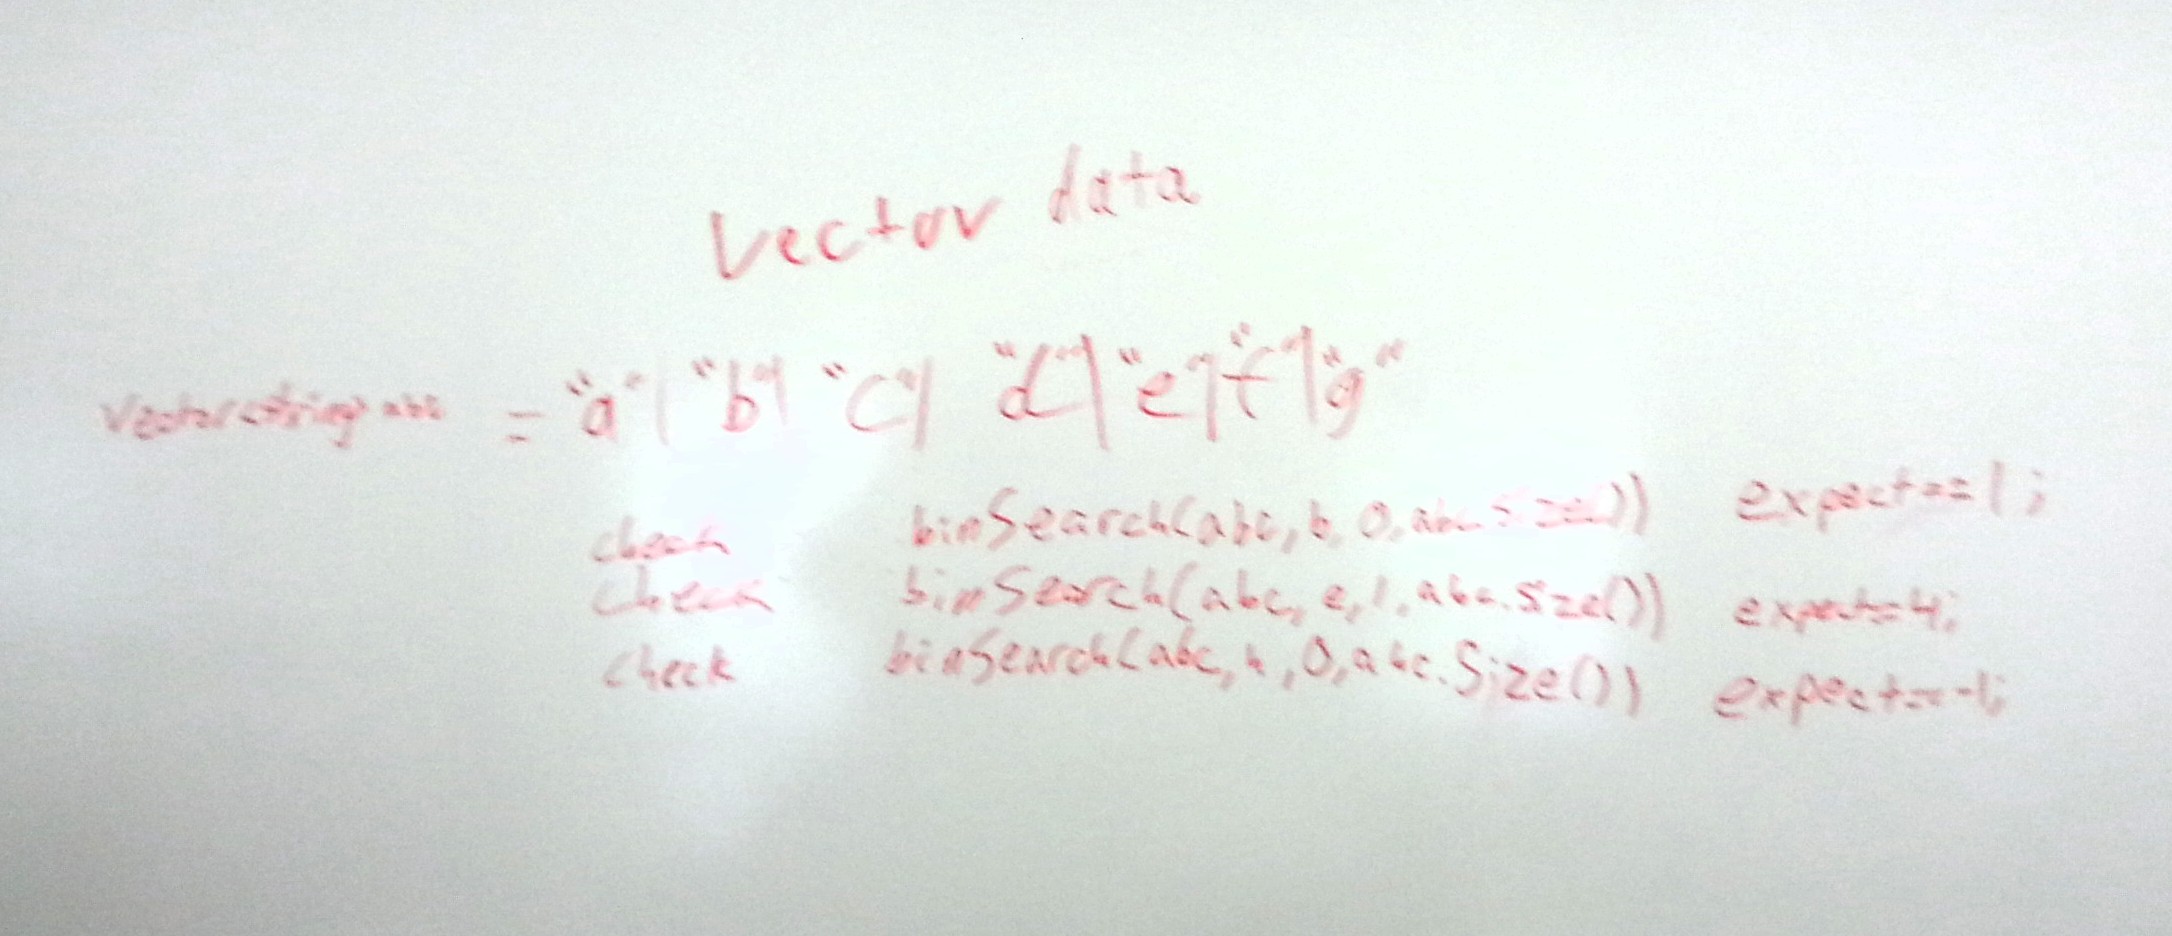 Vector data
Vector<string> abc = "a" | "b" | "c" | "d" | "e" | "f" | "g"
check binSearch(abc, b, 0, abc.size()) expect==1;
check binSearch(abc, e, 1, abc.size()) expect=4;
check binSearch(abc, h, 0, abc.Size()) expect==-1;